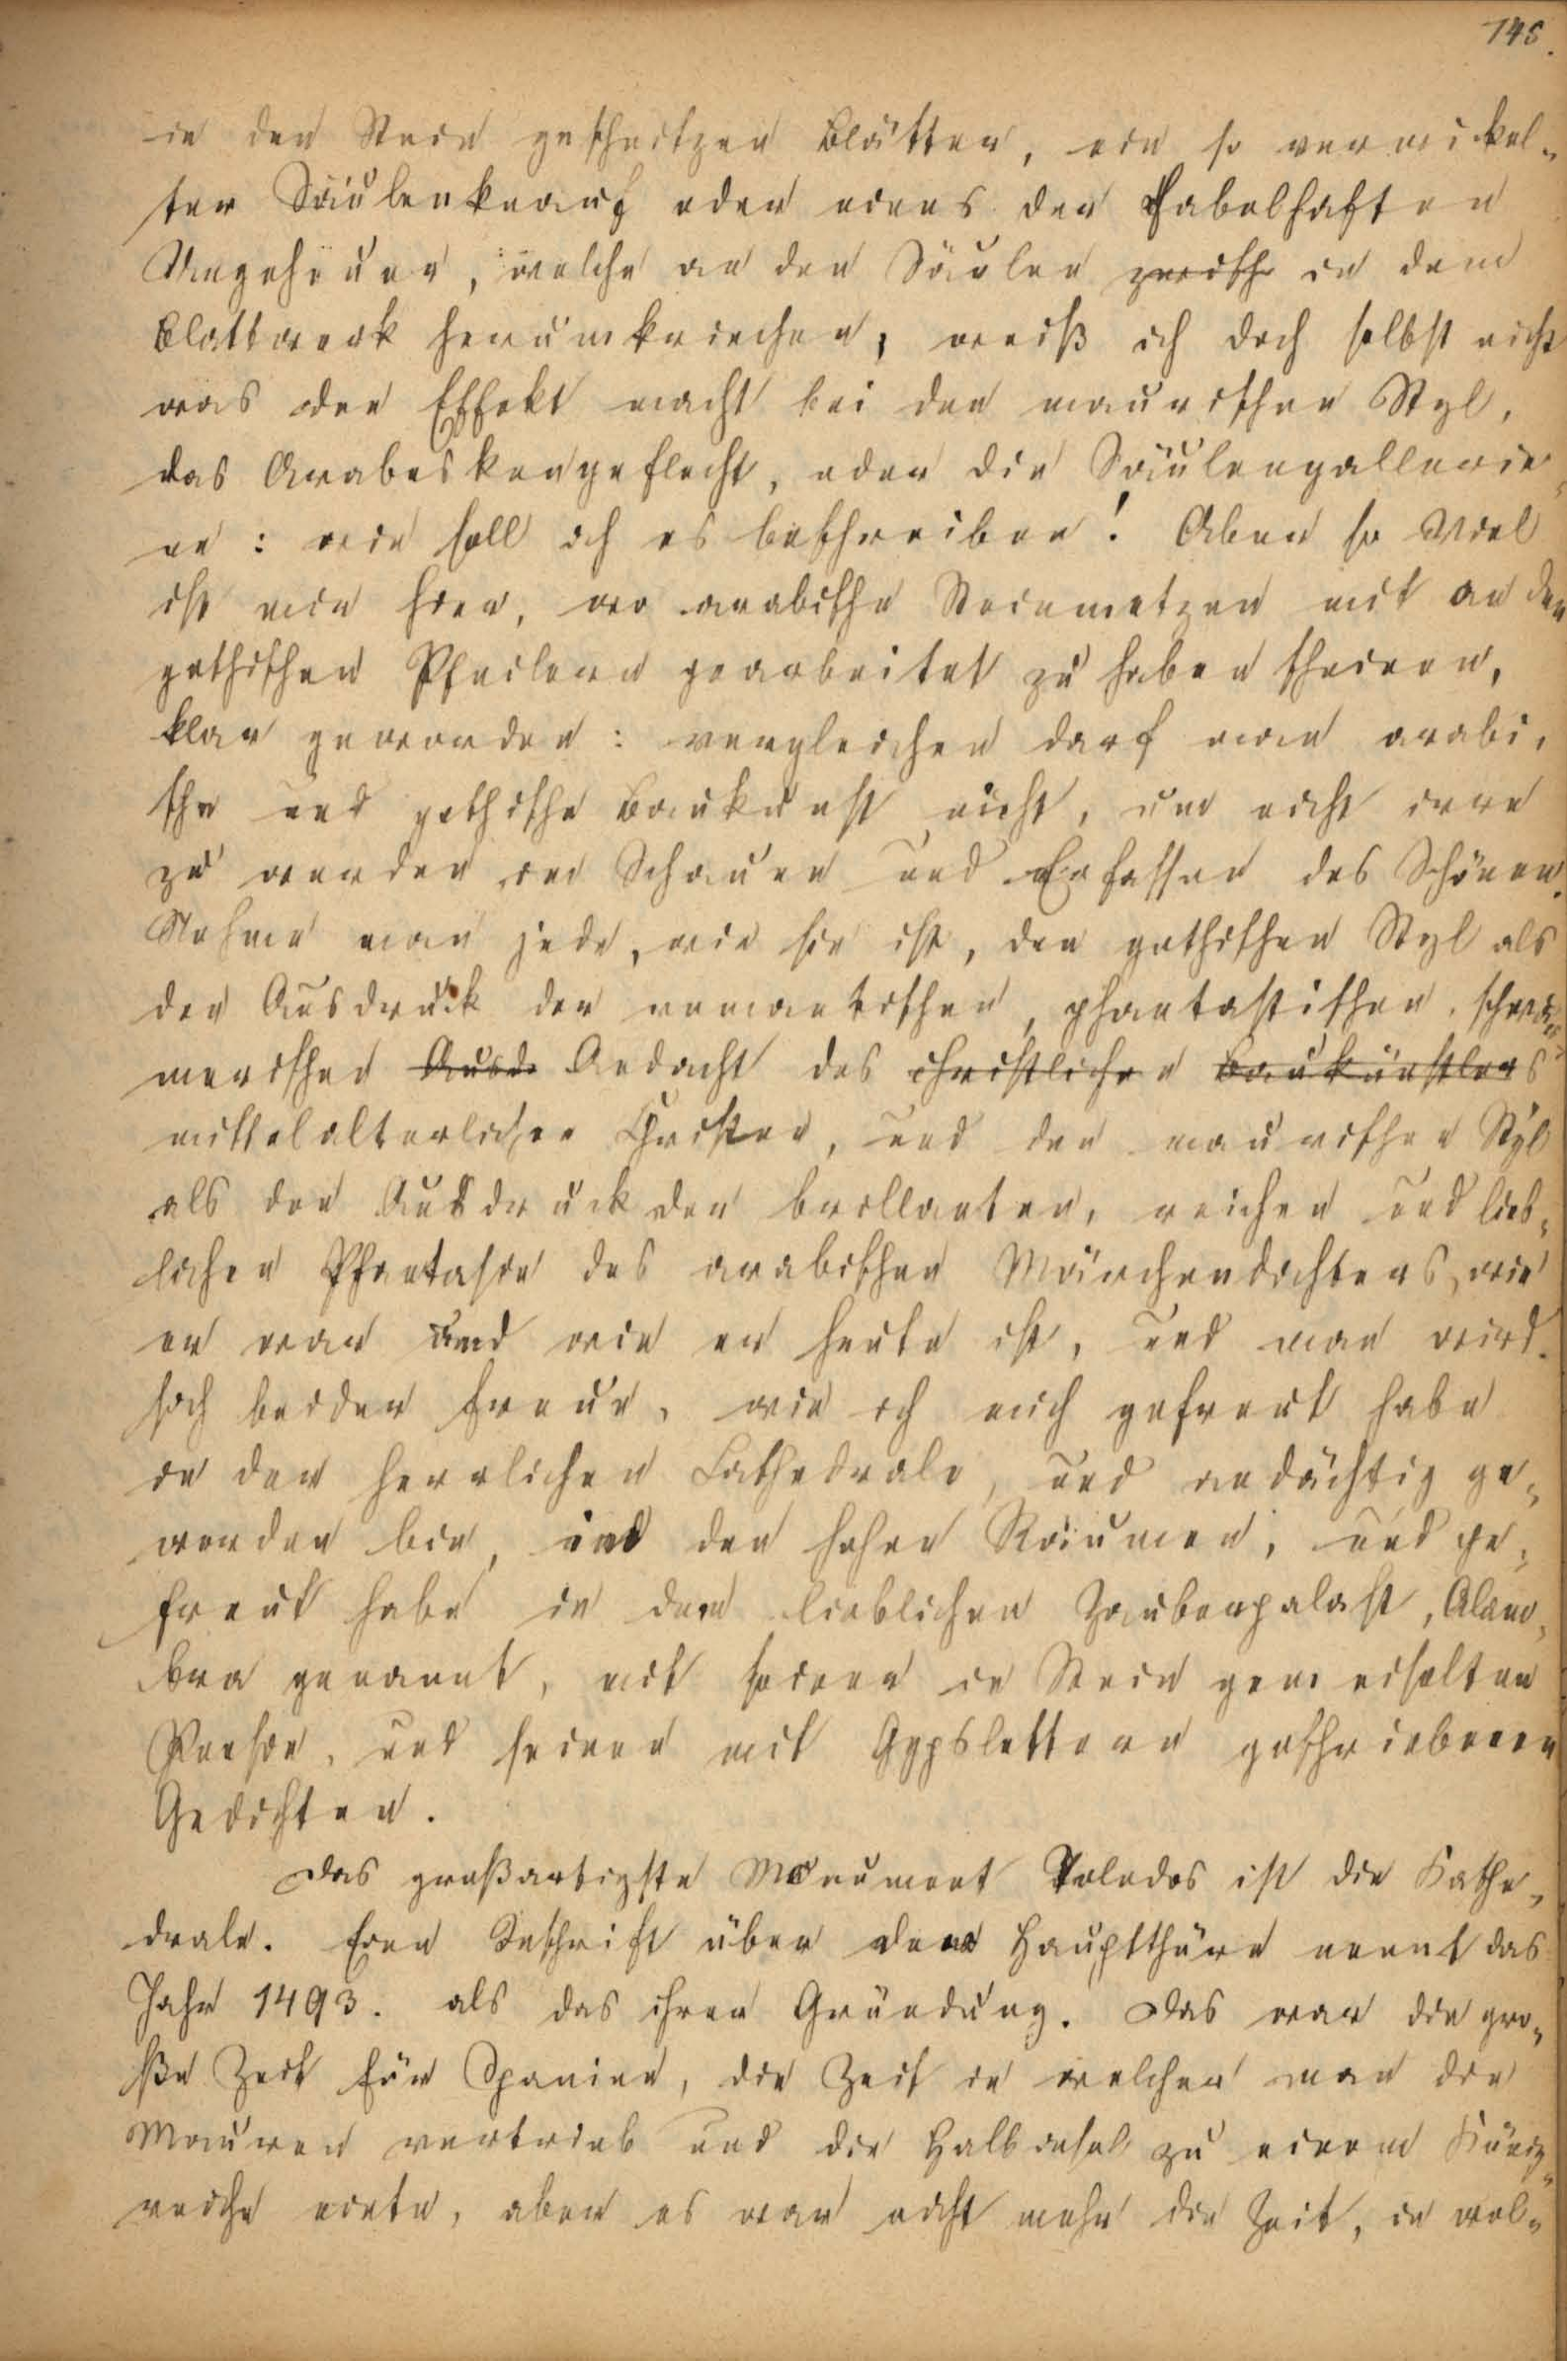 145.
in den Stein geschnitzen Blätter, ein so verwickel-
ter Säulenknauf oder eines der fabelhaften
Ungeheuer, welche an den Säulen zwisch in dem
Blattwerk herumkriechen, weiß ich doch selbst nicht
was den Effekt macht bei den maurischen Styl,
das Arabeskengeflecht, oder die Säulengallerie-
en: wie soll ich es beschreiben! Aber so Viel
ist mir hier, wo arabische Steinmetzen mit an den
gothischen Pfeilern gearbeitet zu haben scheinen,
klar geworden: vergleichen darf man arabi-
sche und gothische Baukunst nicht, um nicht irre
zu werden im Schauen und Erfassen des Schönen.
Nehme man jede, wie sie ist, den gothischen Styl als
den Ausdruck der romantischen, phantastischen, schwär-
merischen Ausd Andacht des christlichen Baukünstlers
mittelalterlichen Christen, und den maurischen Styl
als den Ausdruck der brillanten, reichen und lieb-
lichen Phantasie des arabischen Märchendichters, wie
er war und wie er heute ist, und man wird
sich beider freun, wie ich mich gefreut habe
in der herrlichen Cathedrale, und andächtig ge-
worden bin, in den hohen Räumen, und ge-
freut habe in dem lieblichen Zauberpalast, Alam-
bra genannt, mit seinen in Stein gemeiselten
Poesie, und seinen mit Gypslettern geschriebenen
Gedichten.
Das großartigste Monument Toledos ist die Kathe-
drale. Eine Inschrift über der Hauptthüre nennt das
Jahr 1493. als das ihrer Gründung. Das war die gro-
ße Zeit für Spanien, die Zeit in welcher man die
Mauren vertrieb und die Halbinsel zu einem König-
reiche einte, aber es war nicht mehr die Zeit, in wel-